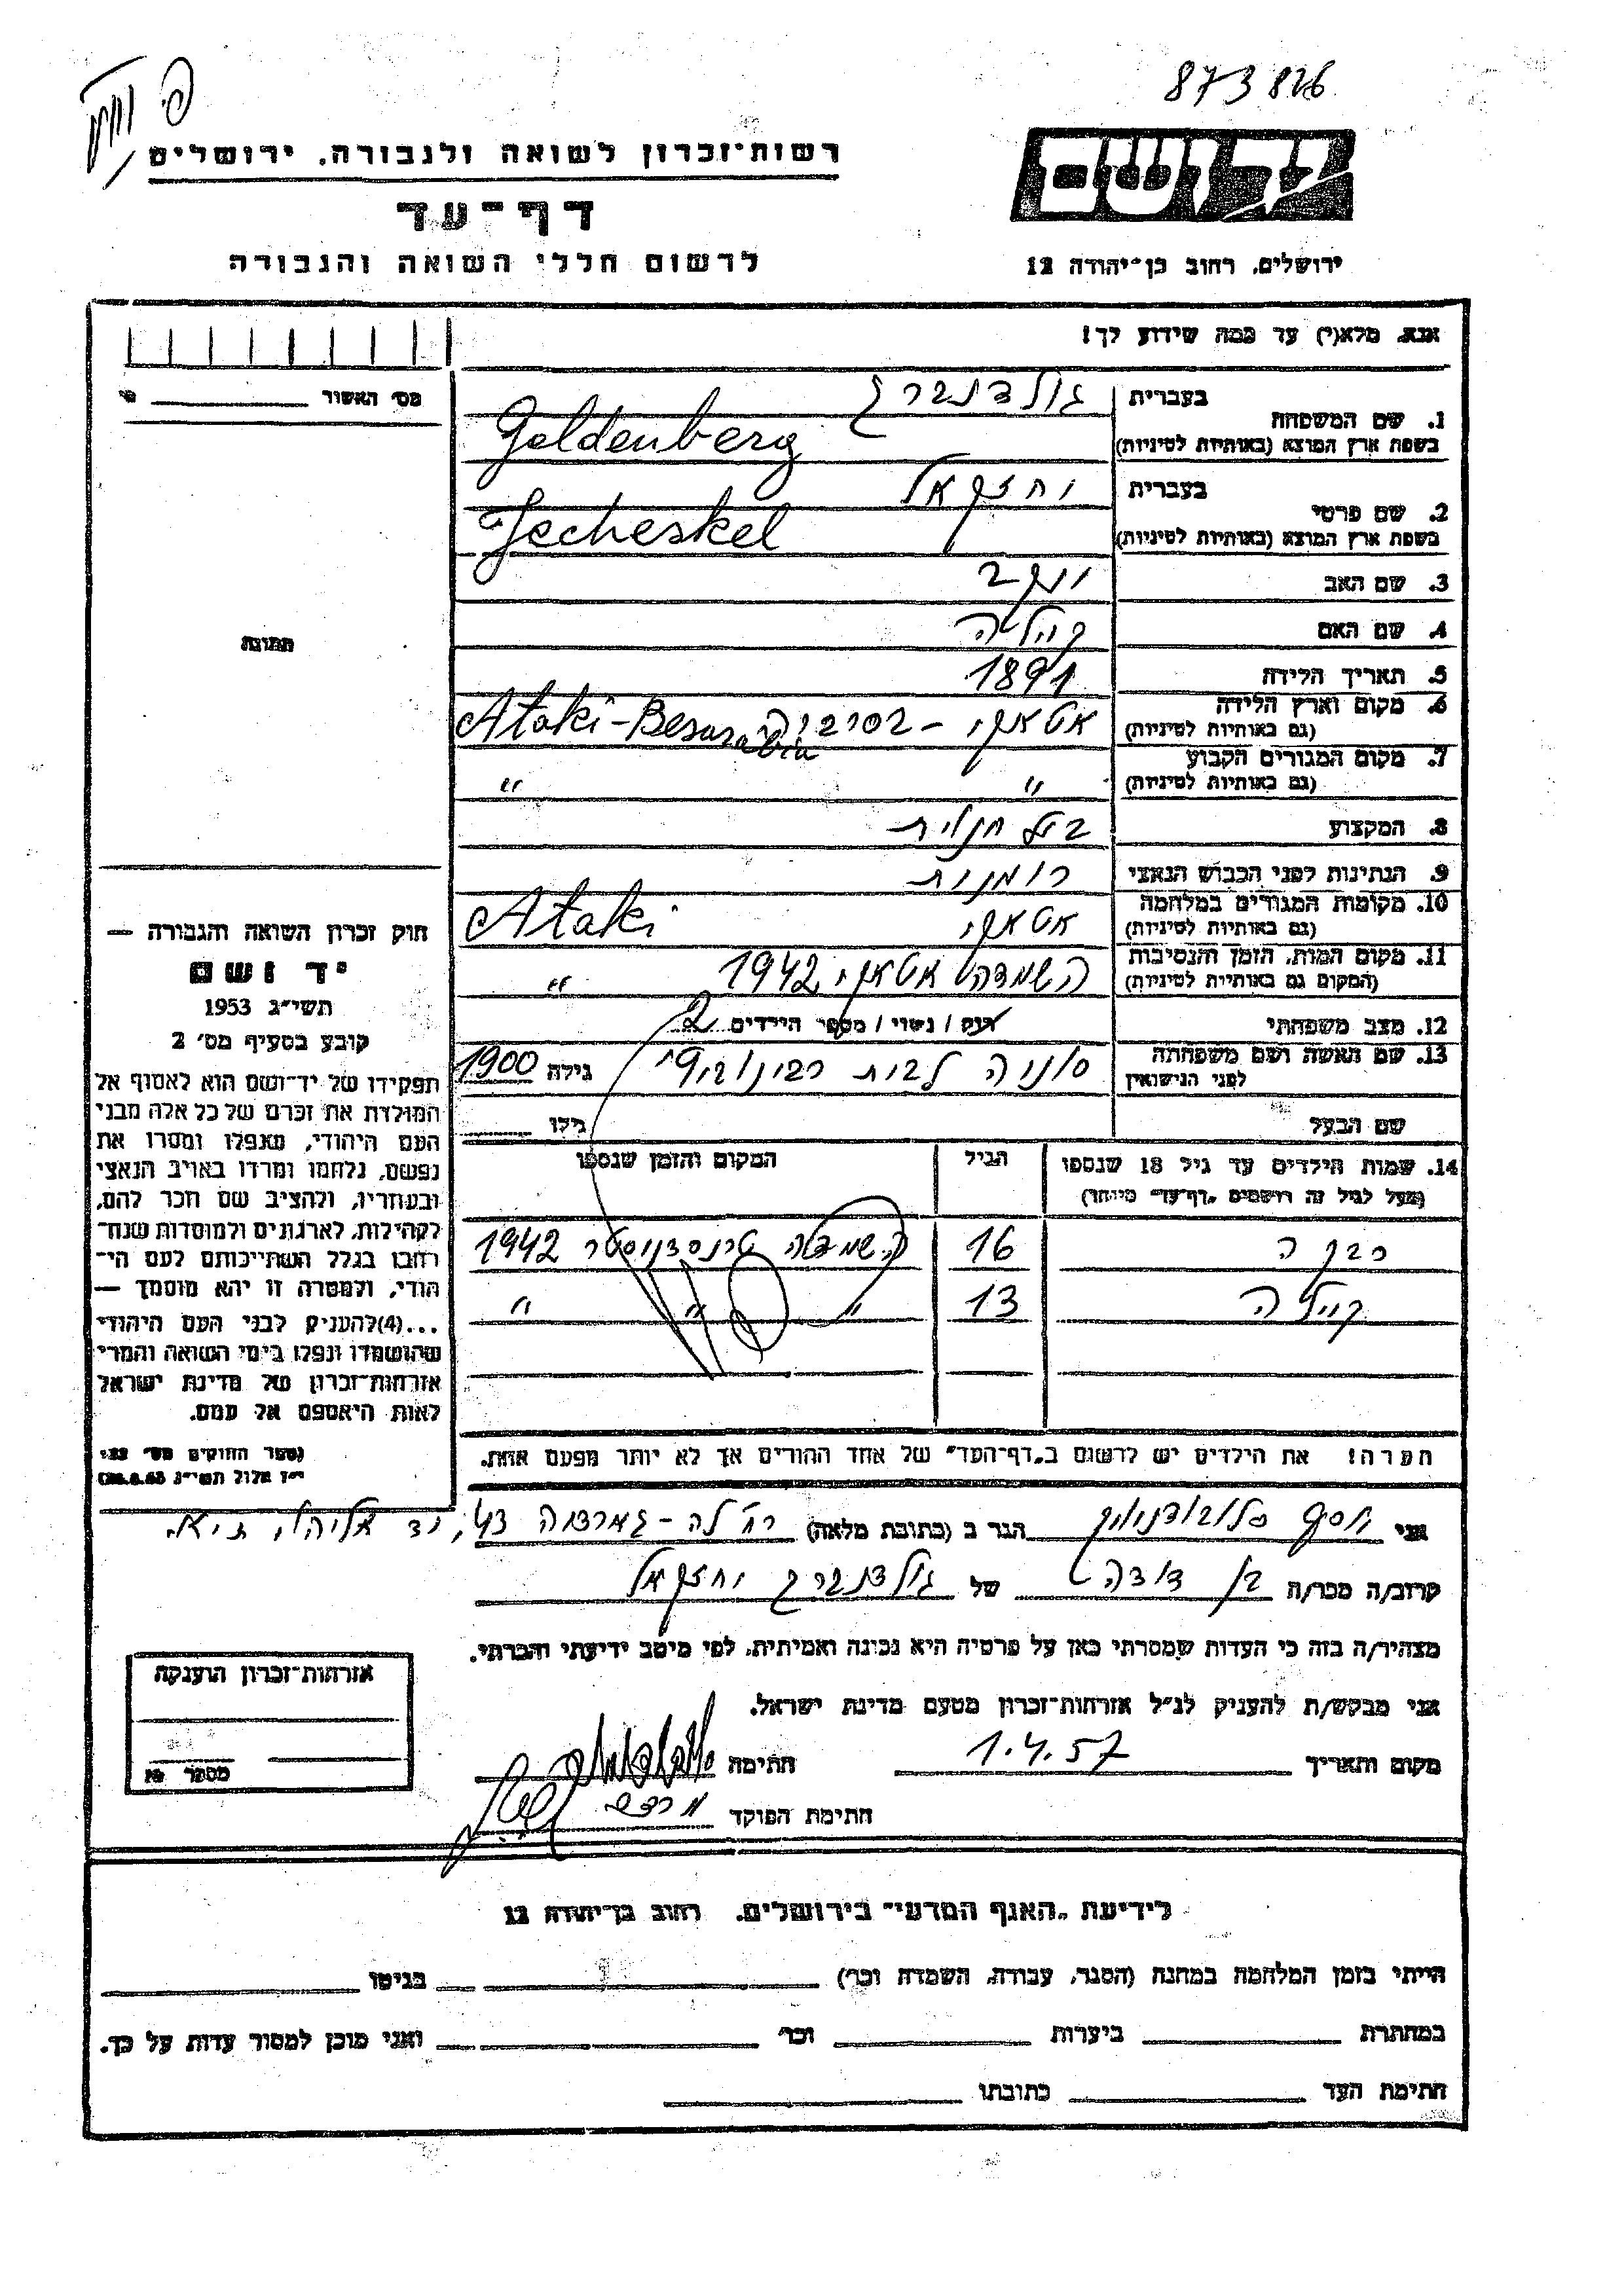 873826
רשות־זכרון לשואה ולגבורה. ירושלים
יד ושם
דף־עד
לרשום חללי השואה והגבורה
ירושלים. רחוב בן־יהודה 12
אנא, מלא(י) עד כמה שידוע לך!
מס׳ האשור
1. שם המשפחה בעברית גולדנברג
בשפת ארץ המוצא (באותיות לטיניות) Goldenberg
2. שם פרטי בעברית יחזקאל
בשפת ארץ המוצא (באותיות לטיניות) Jecheskel
3. שם האב יעקב
4. שם האם קיילה
5. תאריך הלידה 1891
6. מקום וארץ הלידה (גם באותיות לטיניות) אטאקי - בסרביה Ataki-Besarabia
7. מקום המגורים הקבוע (גם באותיות לטיניות) " "
8. המקצוע בעל חנות
9. הנתינות לפני הכבוש הנאצי רומנית
10. מקומות המגורים במלחמה (גם באותיות לטיניות) אטאקי Ataki
11. מקום המות, הזמן והנסיבות (המקום גם באותיות לטיניות) השמדה אטאקי 1942 "
12. מצב משפחתי רווק / נשוי / מספר הילדים 2
13. שם האשה ושם משפחתה לפני הנישואין סוניה לבית רבינוביץ גילה 1900
שם הבעל גילו
תמונה
14. שמות הילדים עד גיל 18 שנספו הגיל המקום והזמן שנספו
(מעל לגיל זה רושמים „דף־עד״ מיוחד)
רבקה 16 השמדה טרנסדניסטר 1942
קיילה 13 " " "
הערה! את הילדים יש לרשום ב„דף־העד״ של אחד ההורים אך לא יותר מפעם אחת.
חוק זכרון השואה והגבורה —
יד ושם
תשי״ג 1953
קובע בסעיף מס׳ 2
תפקידו של יד־ושם הוא לאסוף אל
המולדת את זכרם של כל אלה מבני
העם היהודי, שנפלו ומסרו את
נפשם, נלחמו ומרדו באויב הנאצי
ובעוזריו, ולהציב שם וזכר להם,
לקהילות, לארגונים ולמוסדות שנח־
רבו בגלל השתייכותם לעם הי־
הודי, ולמטרה זו יהא מוסמך —
...(4)להעניק לבני העם היהודי
שהושמדו ונפלו בימי השואה והמרי
אזרחות־זכרון של מדינת ישראל
לאות היאספם אל עמם.
(ספר החוקים מס׳ 132
י״ז אלול תשי״ג 28.8.53)
אני יוסף הגר ב (כתובת מלאה) 43, יד אליהו, ת"א.
קרוב/ה מכר/ה בן דודה של גולדנברג יחזקאל
מצהיר/ה בזה כי העדות שמסרתי כאן על פרטיה היא נכונה ואמיתית, לפי מיטב ידיעתי והכרתי.
אני מבקש/ת להעניק לנ״ל אזרחות־זכרון מטעם מדינת ישראל.
מקום ותאריך 1.4.57 חתימה
חתימת הפוקד
אזרחות־זכרון הוענקה
מספר
לידיעת „האגף המדעי״ בירושלים. רחוב בן־יהודה 12
הייתי בזמן המלחמה במחנה (הסגר, עבודה, השמדה וכו׳) בגיטו
במחתרת ביערות וכו׳ ואני מוכן למסור עדות על כך.
חתימת העד כתובתו